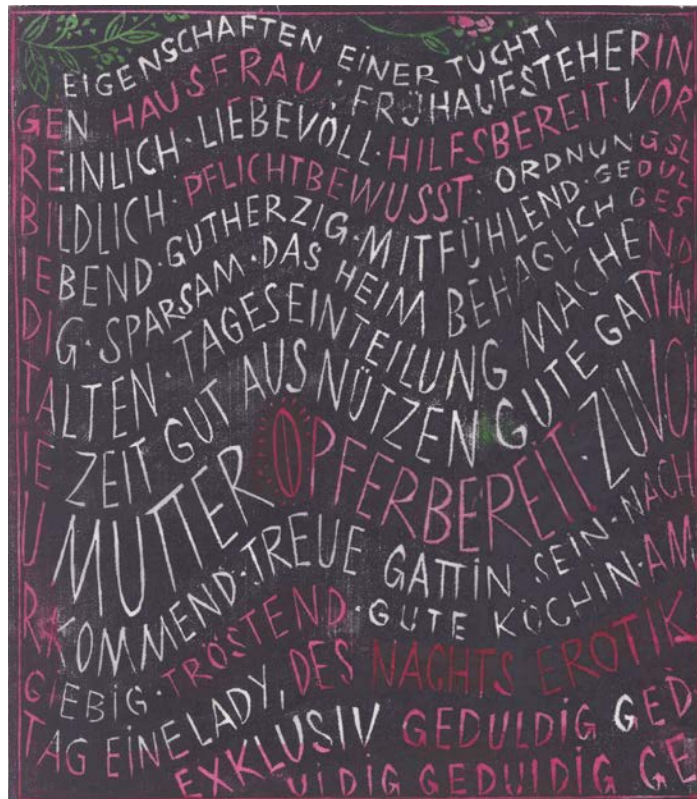 EIGENSCHAFTEN EINER TUCHTI
GEN HAUSFRAU: FRÜHAUFSTEHERIN
REINLICH·LIEBEVOLL·HILFSBEREIT·VOR
BILDLICH·PFLICHTBEWUSST·ORDNUNGSL
IEBEND·GUTHERZIG·MITFÜHLEND·GEDUL
DIG·SPARSAM·DAS HEIM BEHAGLICH GES
TALTEN·TAGESEINTEILUNG MACHEND
IE ZEIT GUT AUSNÜTZEN GUTE GATTIN
U MUTTER OPFERBEREIT·ZUVO
RKOMMEND·TREUE GATTIN SEIN·NACH
GIEBIG·TRÖSTEND·GUTE KÖCHIN·AM
TAG EINE LADY, DES NACHTS EROTIK
EXKLUSIV GEDULDIG GED
ULDIG GEDULDIG GE